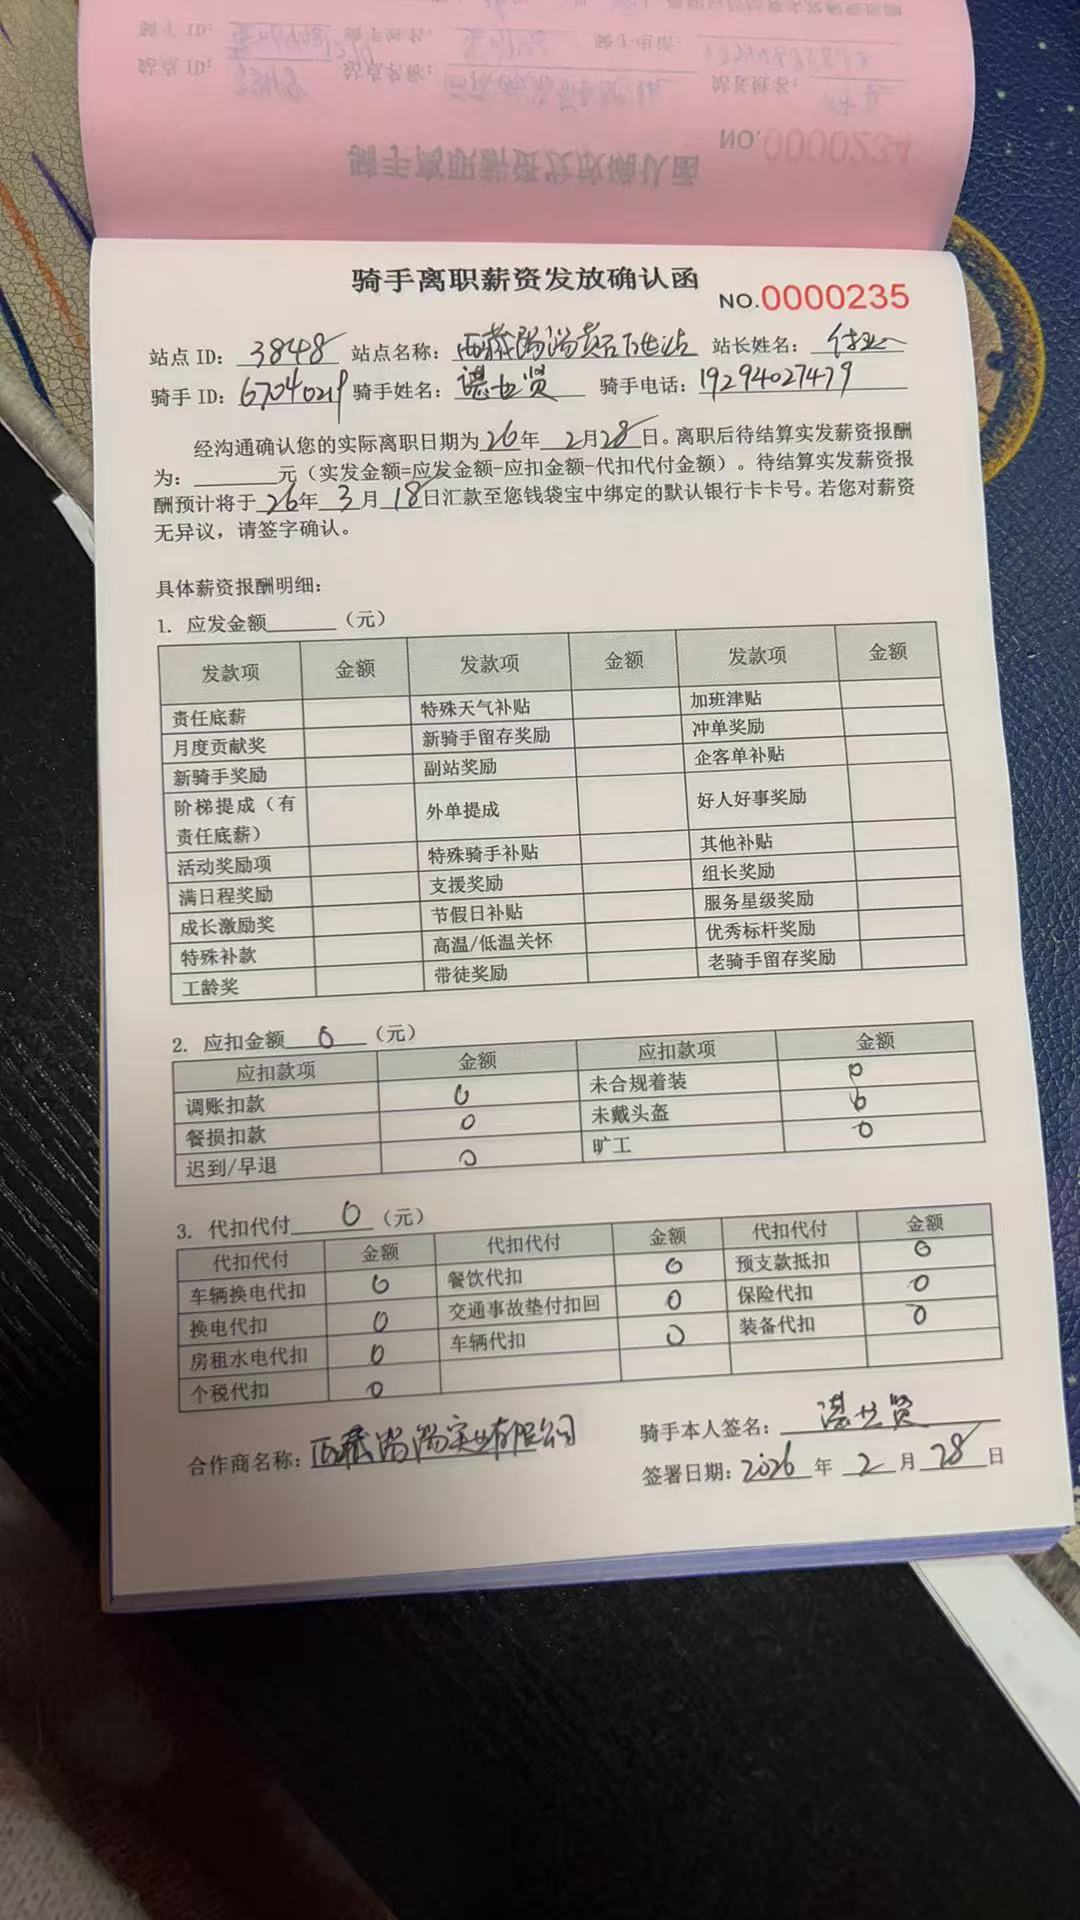 骑手离职薪资发放确认函
NO.0000235
站点 ID: 3848 站点名称: 西藏 站长姓名: 付
骑手 ID: 67040219 骑手姓名: 谌世贤 骑手电话: 19294027479
经沟通确认您的实际离职日期为26年2月28日。离职后待结算实发薪资报酬
为:______元（实发金额=应发金额-应扣金额-代扣代付金额）。待结算实发薪资报
酬预计将于26年3月18日汇款至您钱袋宝中绑定的默认银行卡卡号。若您对薪资
无异议，请签字确认。
具体薪资报酬明细:
1. 应发金额______（元）
发款项 金额 发款项 金额 发款项 金额
责任底薪 特殊天气补贴 加班津贴
月度贡献奖 新骑手留存奖励 冲单奖励
新骑手奖励 副站奖励 企客单补贴
阶梯提成（有
责任底薪） 外单提成 好人好事奖励
活动奖励项 特殊骑手补贴 其他补贴
满日程奖励 支援奖励 组长奖励
成长激励奖 节假日补贴 服务星级奖励
特殊补款 高温/低温关怀 优秀标杆奖励
工龄奖 带徒奖励 老骑手留存奖励
2. 应扣金额 0 （元）
应扣款项 金额 应扣款项 金额
调账扣款 0 未合规着装 0
餐损扣款 0 未戴头盔 0
迟到/早退 0 旷工 0
3. 代扣代付 0 （元）
代扣代付 金额 代扣代付 金额 代扣代付 金额
车辆换电代扣 0 餐饮代扣 0 预支款抵扣 0
换电代扣 0 交通事故垫付扣回 0 保险代扣 0
房租水电代扣 0 车辆代扣 0 装备代扣 0
个税代扣 0
合作商名称: 西藏 实业有限公司
骑手本人签名: 谌世贤
签署日期: 2026 年 2 月 28 日